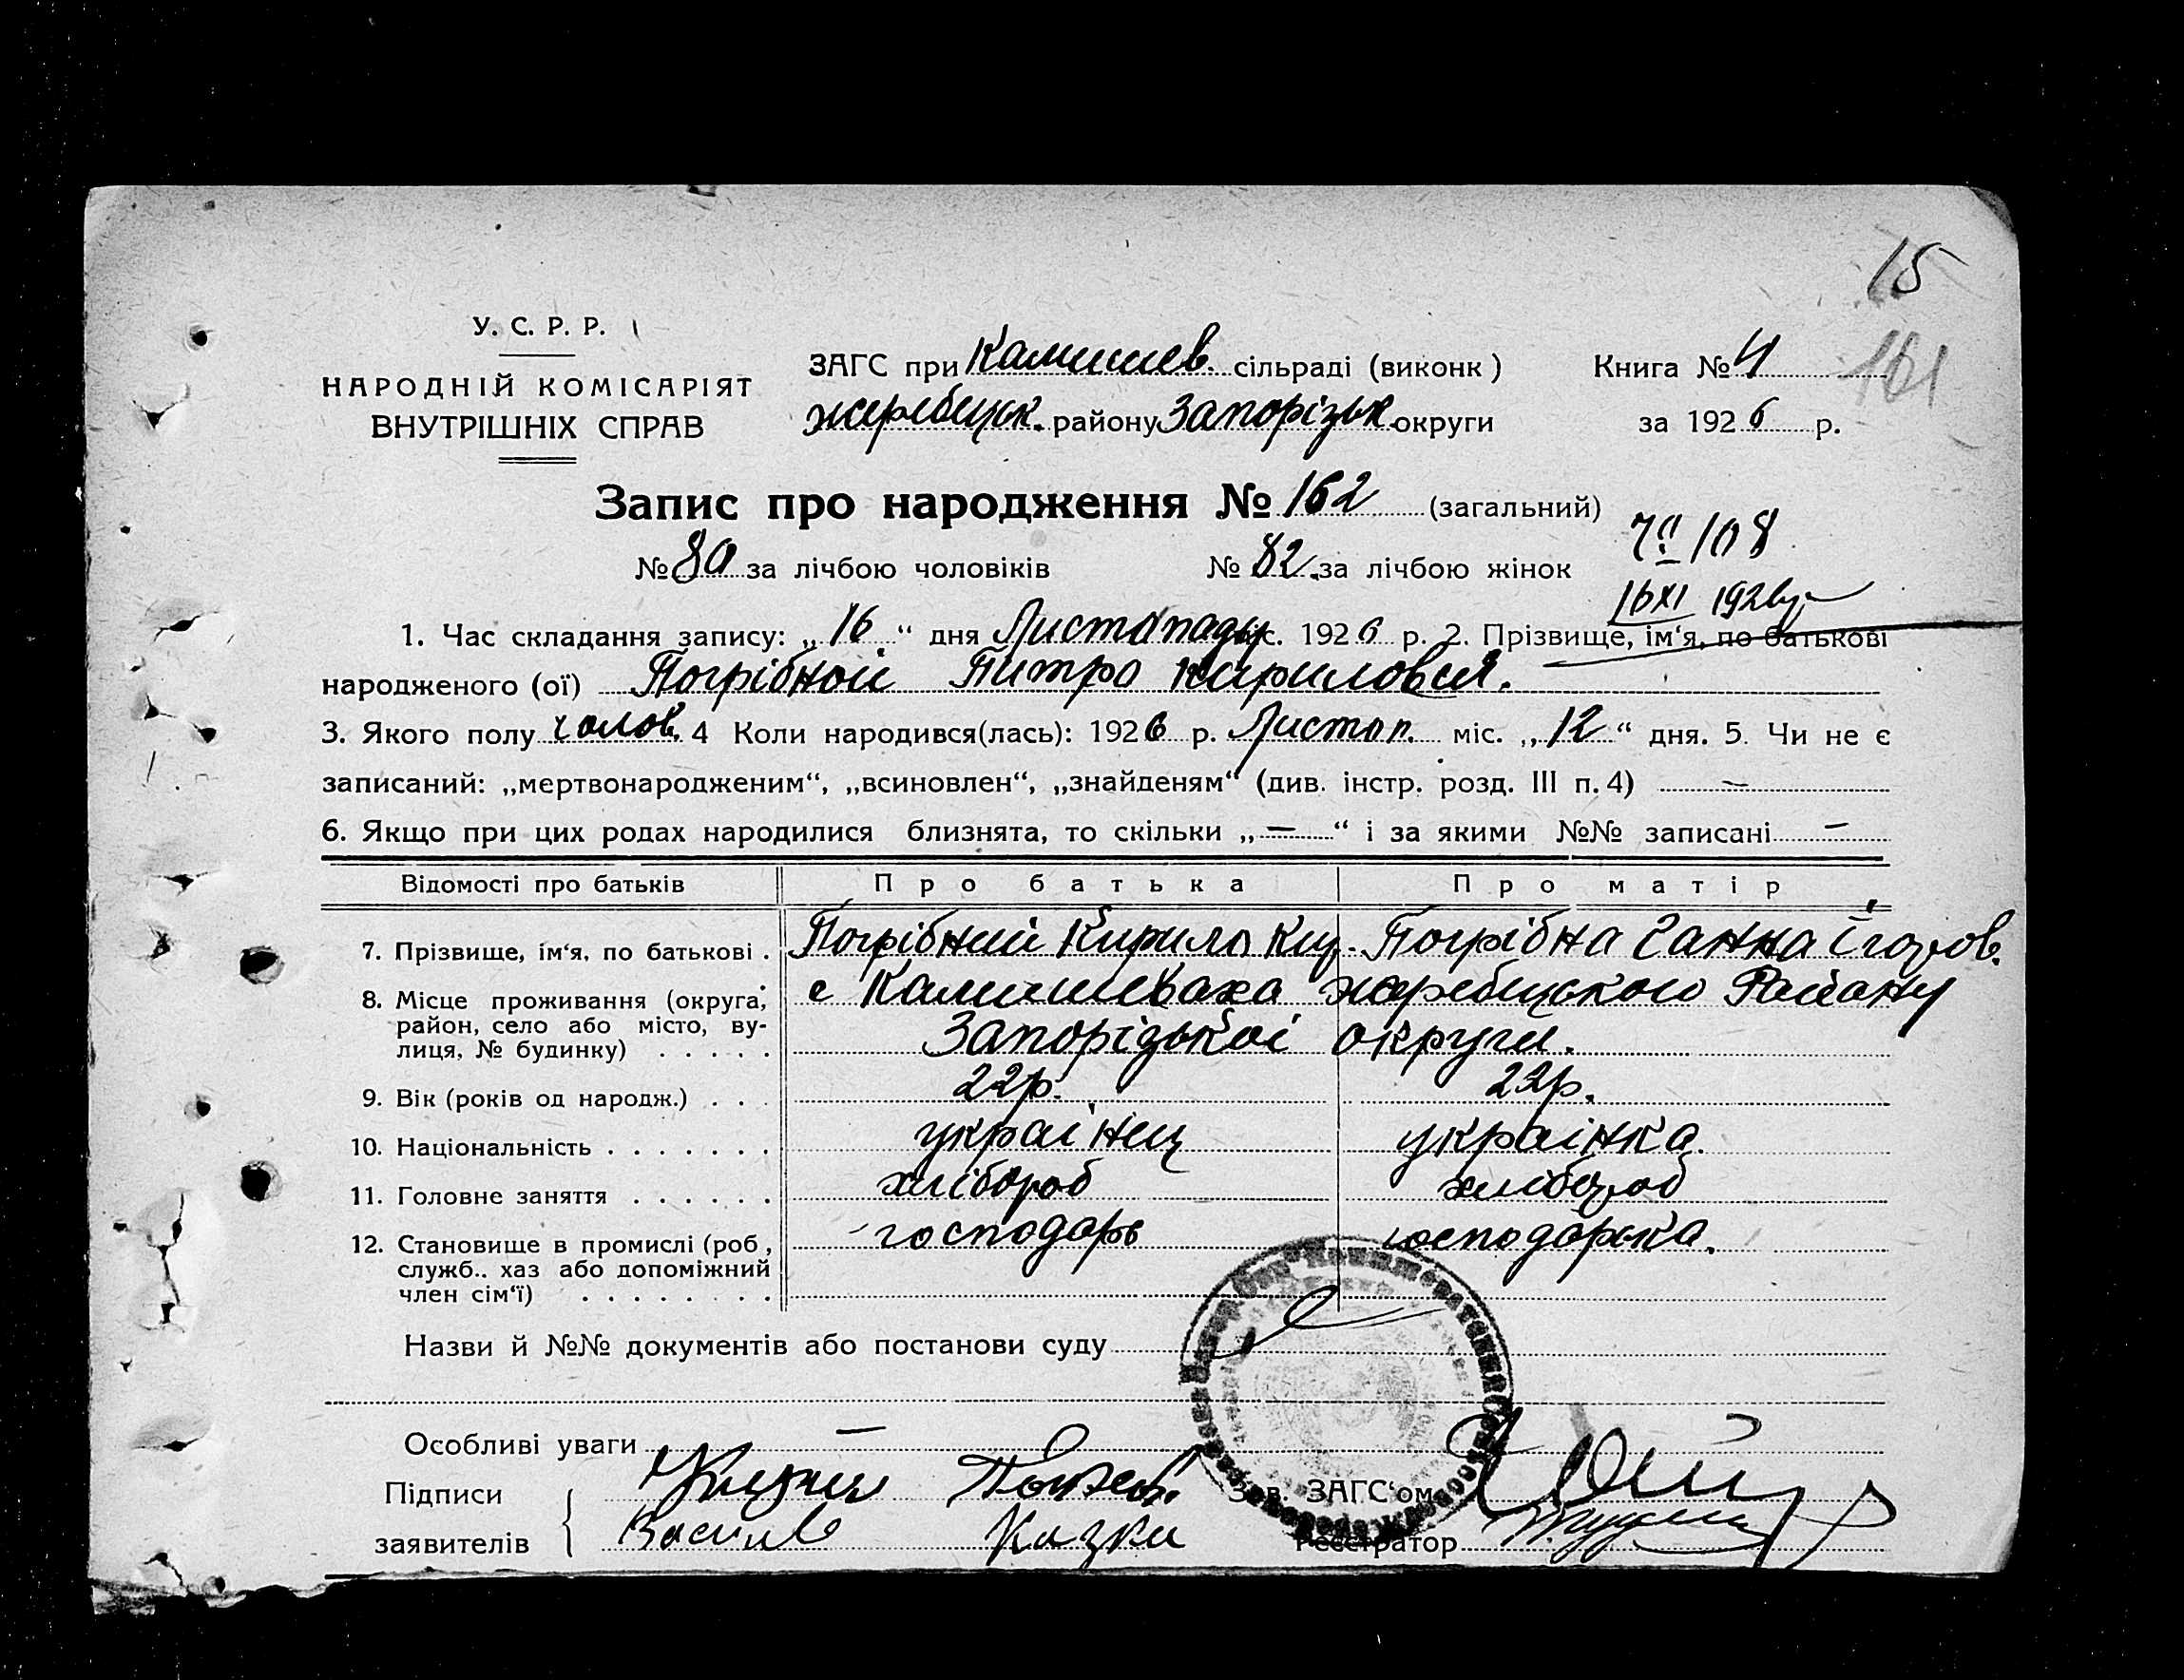 15
У. С. Р. Р.
НАРОДНІЙ КОМІСАРІЯТ
ВНУТРІШНІХ СПРАВ
ЗАГС при Камишев. сільраді (виконк)
Книга № 4
161
жеребецьк. району Запорізьк. округи
за 1926 р.
Запис про народження № 162 (загальний)
№ 80 за лічбою чоловіків № 82. за лічбою жінок
108
16 XI 1926 р
1. Час складання запису: „16“ дня Листопаду с. 1926 р. 2. Прізвище, ім‘я, по батькові
народженого (ої) Погрібной Питро Кириловия.
3. Якого полу чолов. 4 Коли народився(лась): 1926 р. Листоп. міс. „12“ дня. 5. Чи не є
записаний: „мертвонародженим“, „всиновлен“, „знайденям“ (див. інстр. розд. III п. 4) —
6. Якщо при цих родах народилися близнята, то скільки „—“ і за якими №№ записані —
Відомості про батьків Про батька Про матір
7. Прізвище, ім‘я, по батькові . Погрібний Кирило Погрібна Ганна
8. Місце проживання (округа, район, село або місто, ву-
лиця, № будинку) . . . . .
с Камишеваха жеребецького Району
Запорізької округи.
9. Вік (років од народж.) . . . 22р. 22р.
10. Національність . . . . . . . українец українка.
11. Головне заняття . . . . . . хлібороб хлібороб
12. Становище в промислі (роб, служб.. хаз або допоміжний
член сім‘ї) . . . . . . . .
господарь господарька.
Назви й №№ документів або постанови суду
Особливі уваги —
Підписи
заявителів
Зав. ЗАГС‘ом
Реєстратор